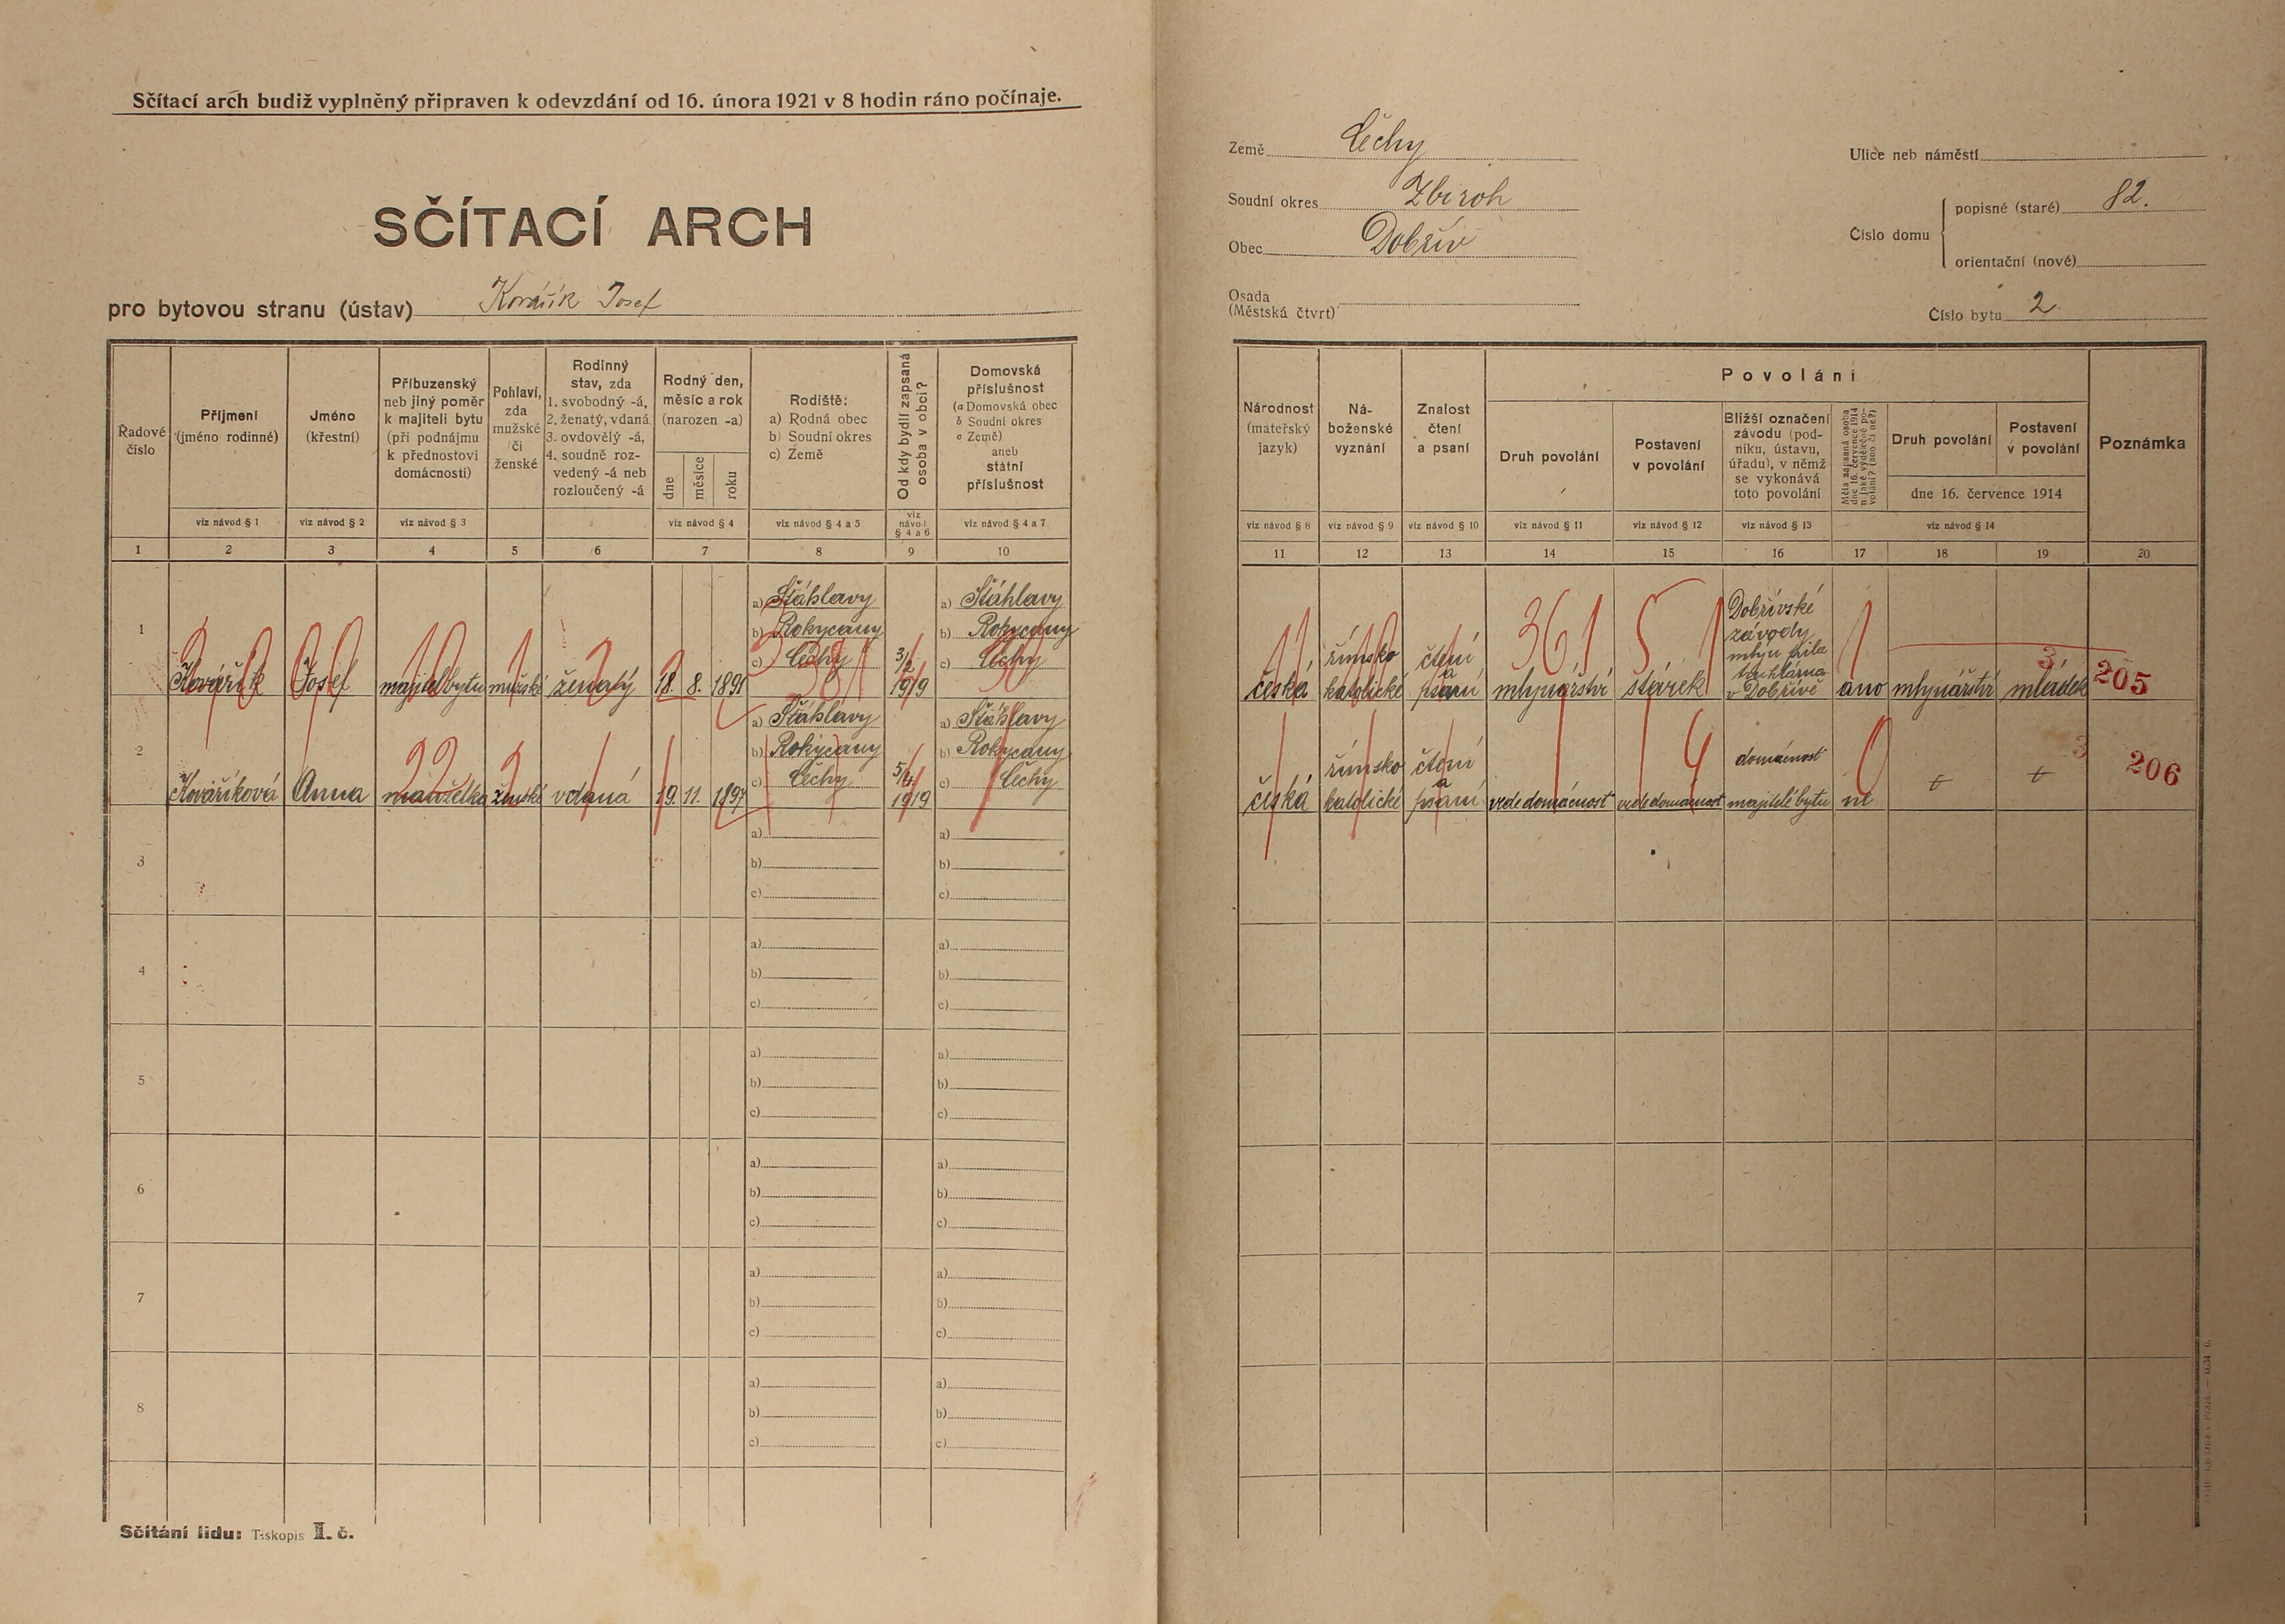 Sčítací arch budiž vyplněný připraven k odevzdání od 16. února 1921 v 8 hodin ráno počínaje.
SČÍTACÍ ARCH
pro bytovou stranu (ústav) Kovářík Josef
Země Čechy
Soudní okres Zbiroh
Obec Dobřív
Osada
(Městská čtvrť)
Ulice neb náměstí
Číslo domu
popisné (staré) 82.
orientační (nové)
Číslo bytu 2.
Řadové
číslo
Příjmení
(jméno rodinné)
viz návod § 1
Jméno
(křestní)
viz návod § 2
Příbuzenský
neb jiný poměr
k majiteli bytu
(při podnájmu
k přednostovi
domácnosti)
viz návod § 3
Pohlaví,
zda
mužské
či
ženské
Rodinný
stav, zda
1. svobodný -á,
2. ženatý, vdaná
3. ovdovělý -á,
4. soudně roz-
vedený -á neb
rozloučený -á
Rodný den,
měsíc a rok
(narozen -a)
dne
měsíce
roku
viz návod § 4
Rodiště:
a) Rodná obec
b) Soudní okres
c) Země
viz návod § 4 a 5
Od kdy bydlí zapsaná
osoba v obci?
viz
návod
§ 4 a 6
Domovská
příslušnost
(a Domovská obec
b Soudní okres
c Země)
aneb
státní
příslušnost
viz návod § 4 a 7
1 2 3 4 5 6 7 8 9 10
Národnost
(mateřský
jazyk)
viz návod § 8
Ná-
boženské
vyznání
viz návod § 9
Znalost
čtení
a psaní
viz návod § 10
Povolání
Druh povolání
viz návod § 11
Postavení
v povolání
viz návod § 12
Bližší označení
závodu (pod-
niku, ústavu,
úřadu), v němž
se vykonává
toto povolání
viz návod § 13
Měla zapsaná osoba
dne 16. července 1914
n. jaké výdělečné po-
volání? (ano či ne?)
Druh povolání
Postavení
v povolání
dne 16. července 1914
viz návod § 14
Poznámka
11 12 13 14 15 16 17 18 19 20
1
Kovářík Josef majitel bytu mužské ženatý 18. 8. 1891
a) Šťáhlavy
b) Rokycany
c) Čechy
3/2
1919
a) Šťáhlavy
b) Rokycany
c) Čechy
česká
římsko
katolické
čtení
a
psaní
mlynářství
stárek
Dobřívské
závody
mlýn pila
truhlárna
v Dobřívě
ano
mlynářství
mládek
361 5
205
2
Kovaříková Anna manželka ženské vdaná 19. 11. 1897
22
a) Šťáhlavy
b) Rokycany
c) Čechy
5/4
1919
a) Šťáhlavy
b) Rokycany
c) Čechy
česká
římsko
katolické
čtení
a
psaní
vede domácnost
vede domácnost
domácnost
majitele bytu
ne
206
3
a)
b)
c)
a)
b)
c)
4
a)
b)
c)
a)
b)
c)
5
a)
b)
c)
a)
b)
c)
6
a)
b)
c)
a)
b)
c)
7
a)
b)
c)
a)
b)
c)
8
a)
b)
c)
a)
b)
c)
Sčítání lidu: Tiskopis II. č.